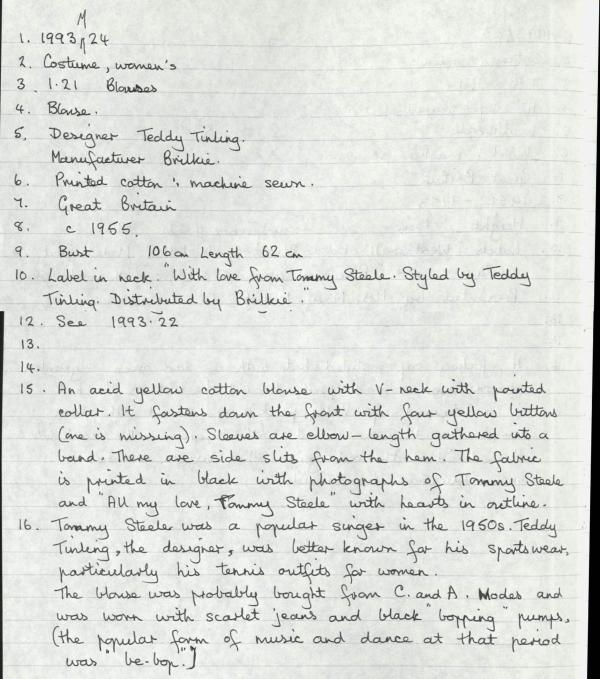 1. 1993 M 24
2. Costume, women's
3. 1.21 Blouses
4. Blouse.
5. Designer Teddy Tinling.
Manufacturer Brilkie.
6. Printed cotton; machine sewn.
7. Great Britain
8. c 1955.
9. Bust 106cm Length 62 cm
10. Label in neck. "With love from Tommy Steele. Styled by Teddy
Tinling. Distributed by Brilkie."
12. See 1993.22
13.
14.
15. An acid yellow cotton blouse with V-neck with pointed
collar. It fastens down the front with four yellow buttons
(one is missing). Sleeves are elbow-length gathered into a
band. There are side slits from the hem. The fabric
is printed in black with photographs of Tommy Steele
and "All my love, Tommy Steele" with hearts in outline.
16. Tommy Steele was a popular singer in the 1950s. Teddy
Tinling, the designer, was better known for his sportswear,
particularly his tennis outfits for women.
The blouse was probably bought from C. and A. Modes and
was worn with scarlet jeans and black "bopping" pumps,
(the popular form of music and dance at that period
was "be-bop".)